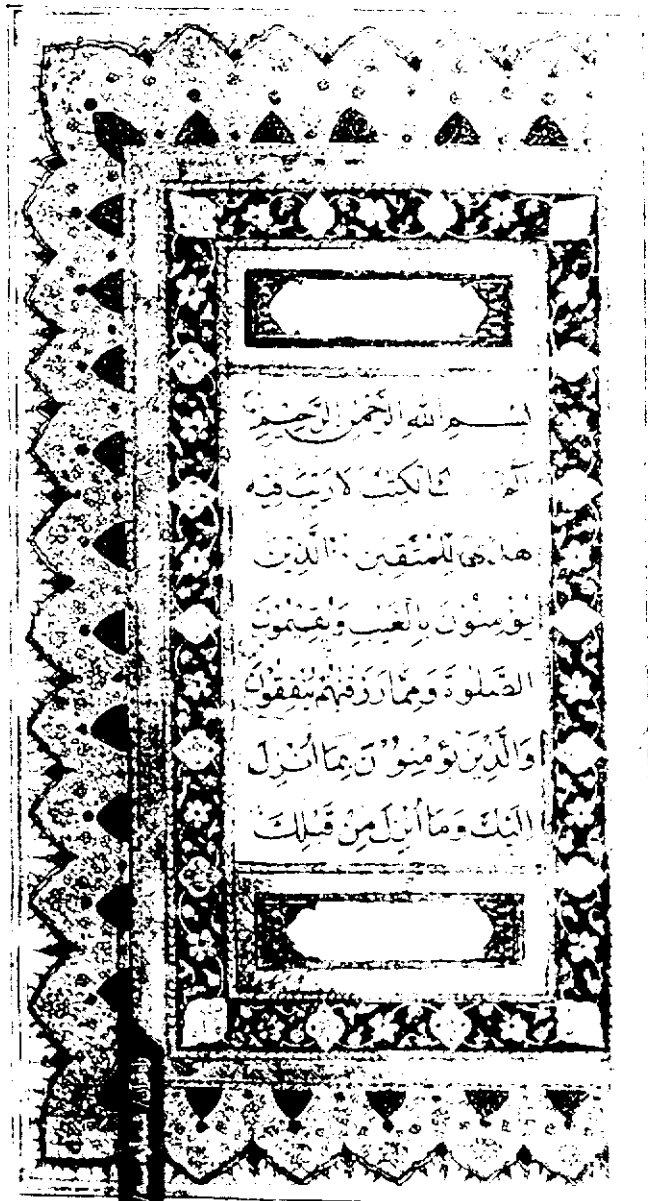 بسم الله الرحمن الرحيم
الم لكتب لا ريب فيه
هدى للمتقين الذين
يؤمنون بالغيب ويقيمون
الصلوة ومما رزقنهم ينفقون
والذين يؤمنون بما أنزل
اليك وما أنزل من قبلك